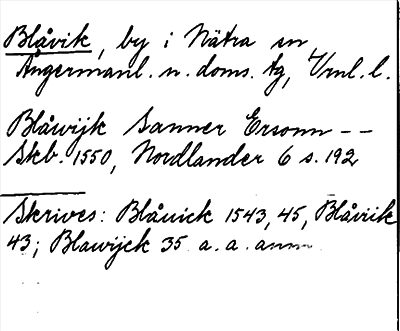 Blåvik, by i Nätra sn
Ångermanl. n. doms. tg, Vrnl. l.
Blåwijk Sanner Ersonn --
Skb. 1550, Nordlander 6 s. 192
Skrives: Blåuick 1543, 45, Blåviik
43; Blawijck 35 a. a. anm